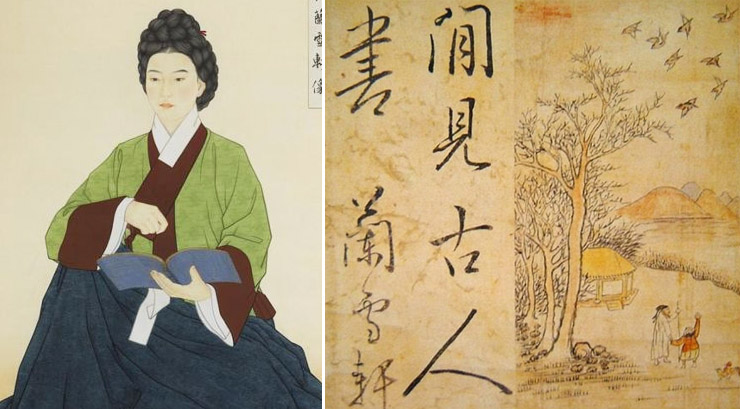 蘭雪軒像
閒見古人
書 蘭雪軒